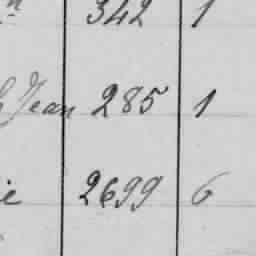 342 1
Jean 285 1
2699 6